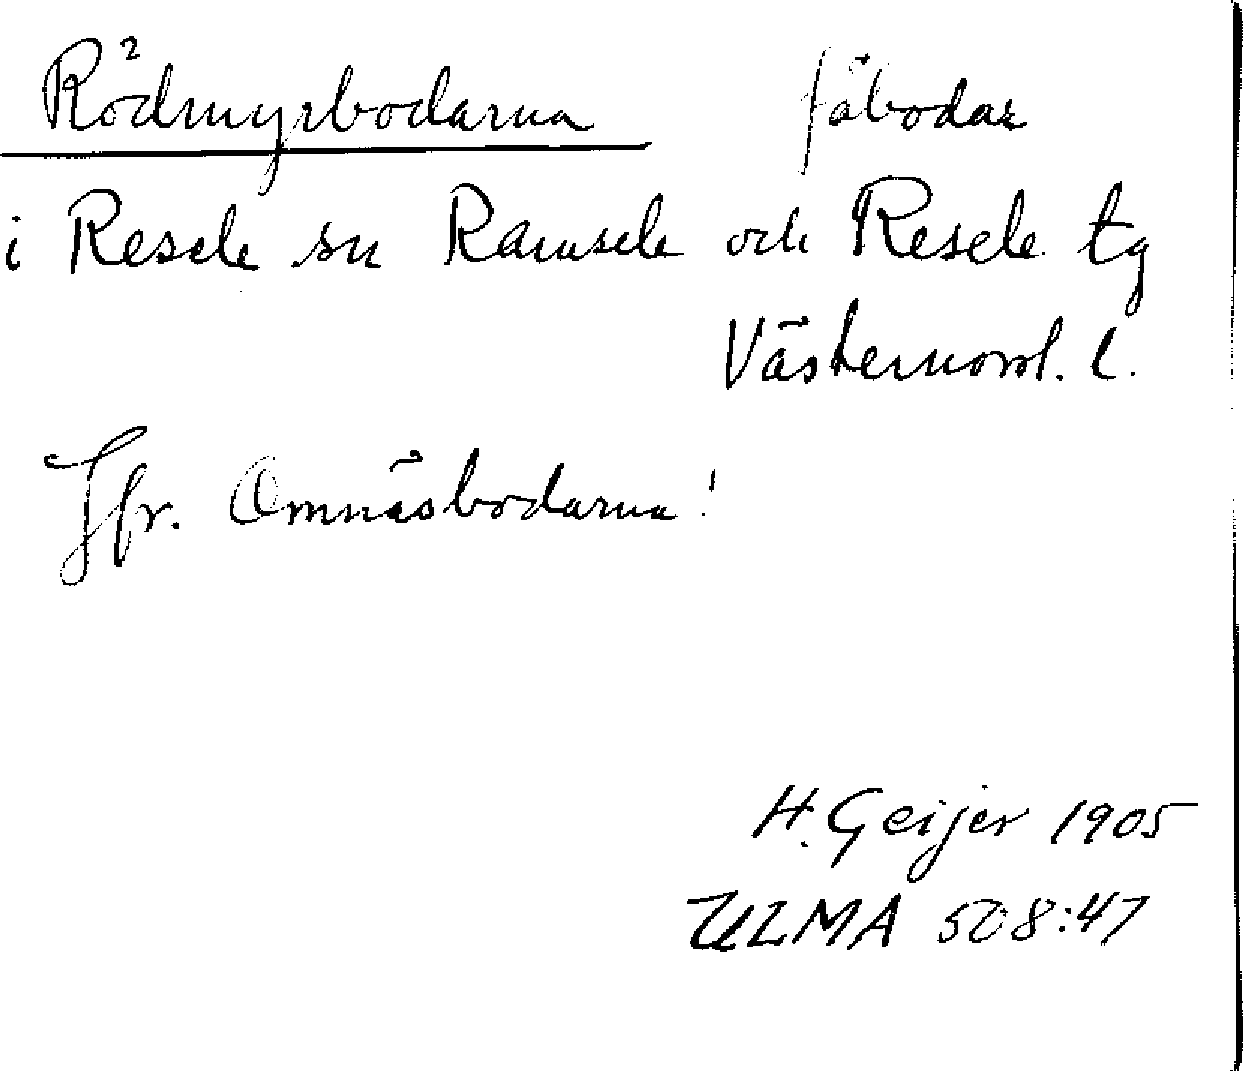 Rödmyrbodarna fäbodar
i Resele sn Ramsele och Resele tg
Västernorrl. l.
Jfr. Omnäsbodarna!
H. Geijer 1905
ULMA 508:47